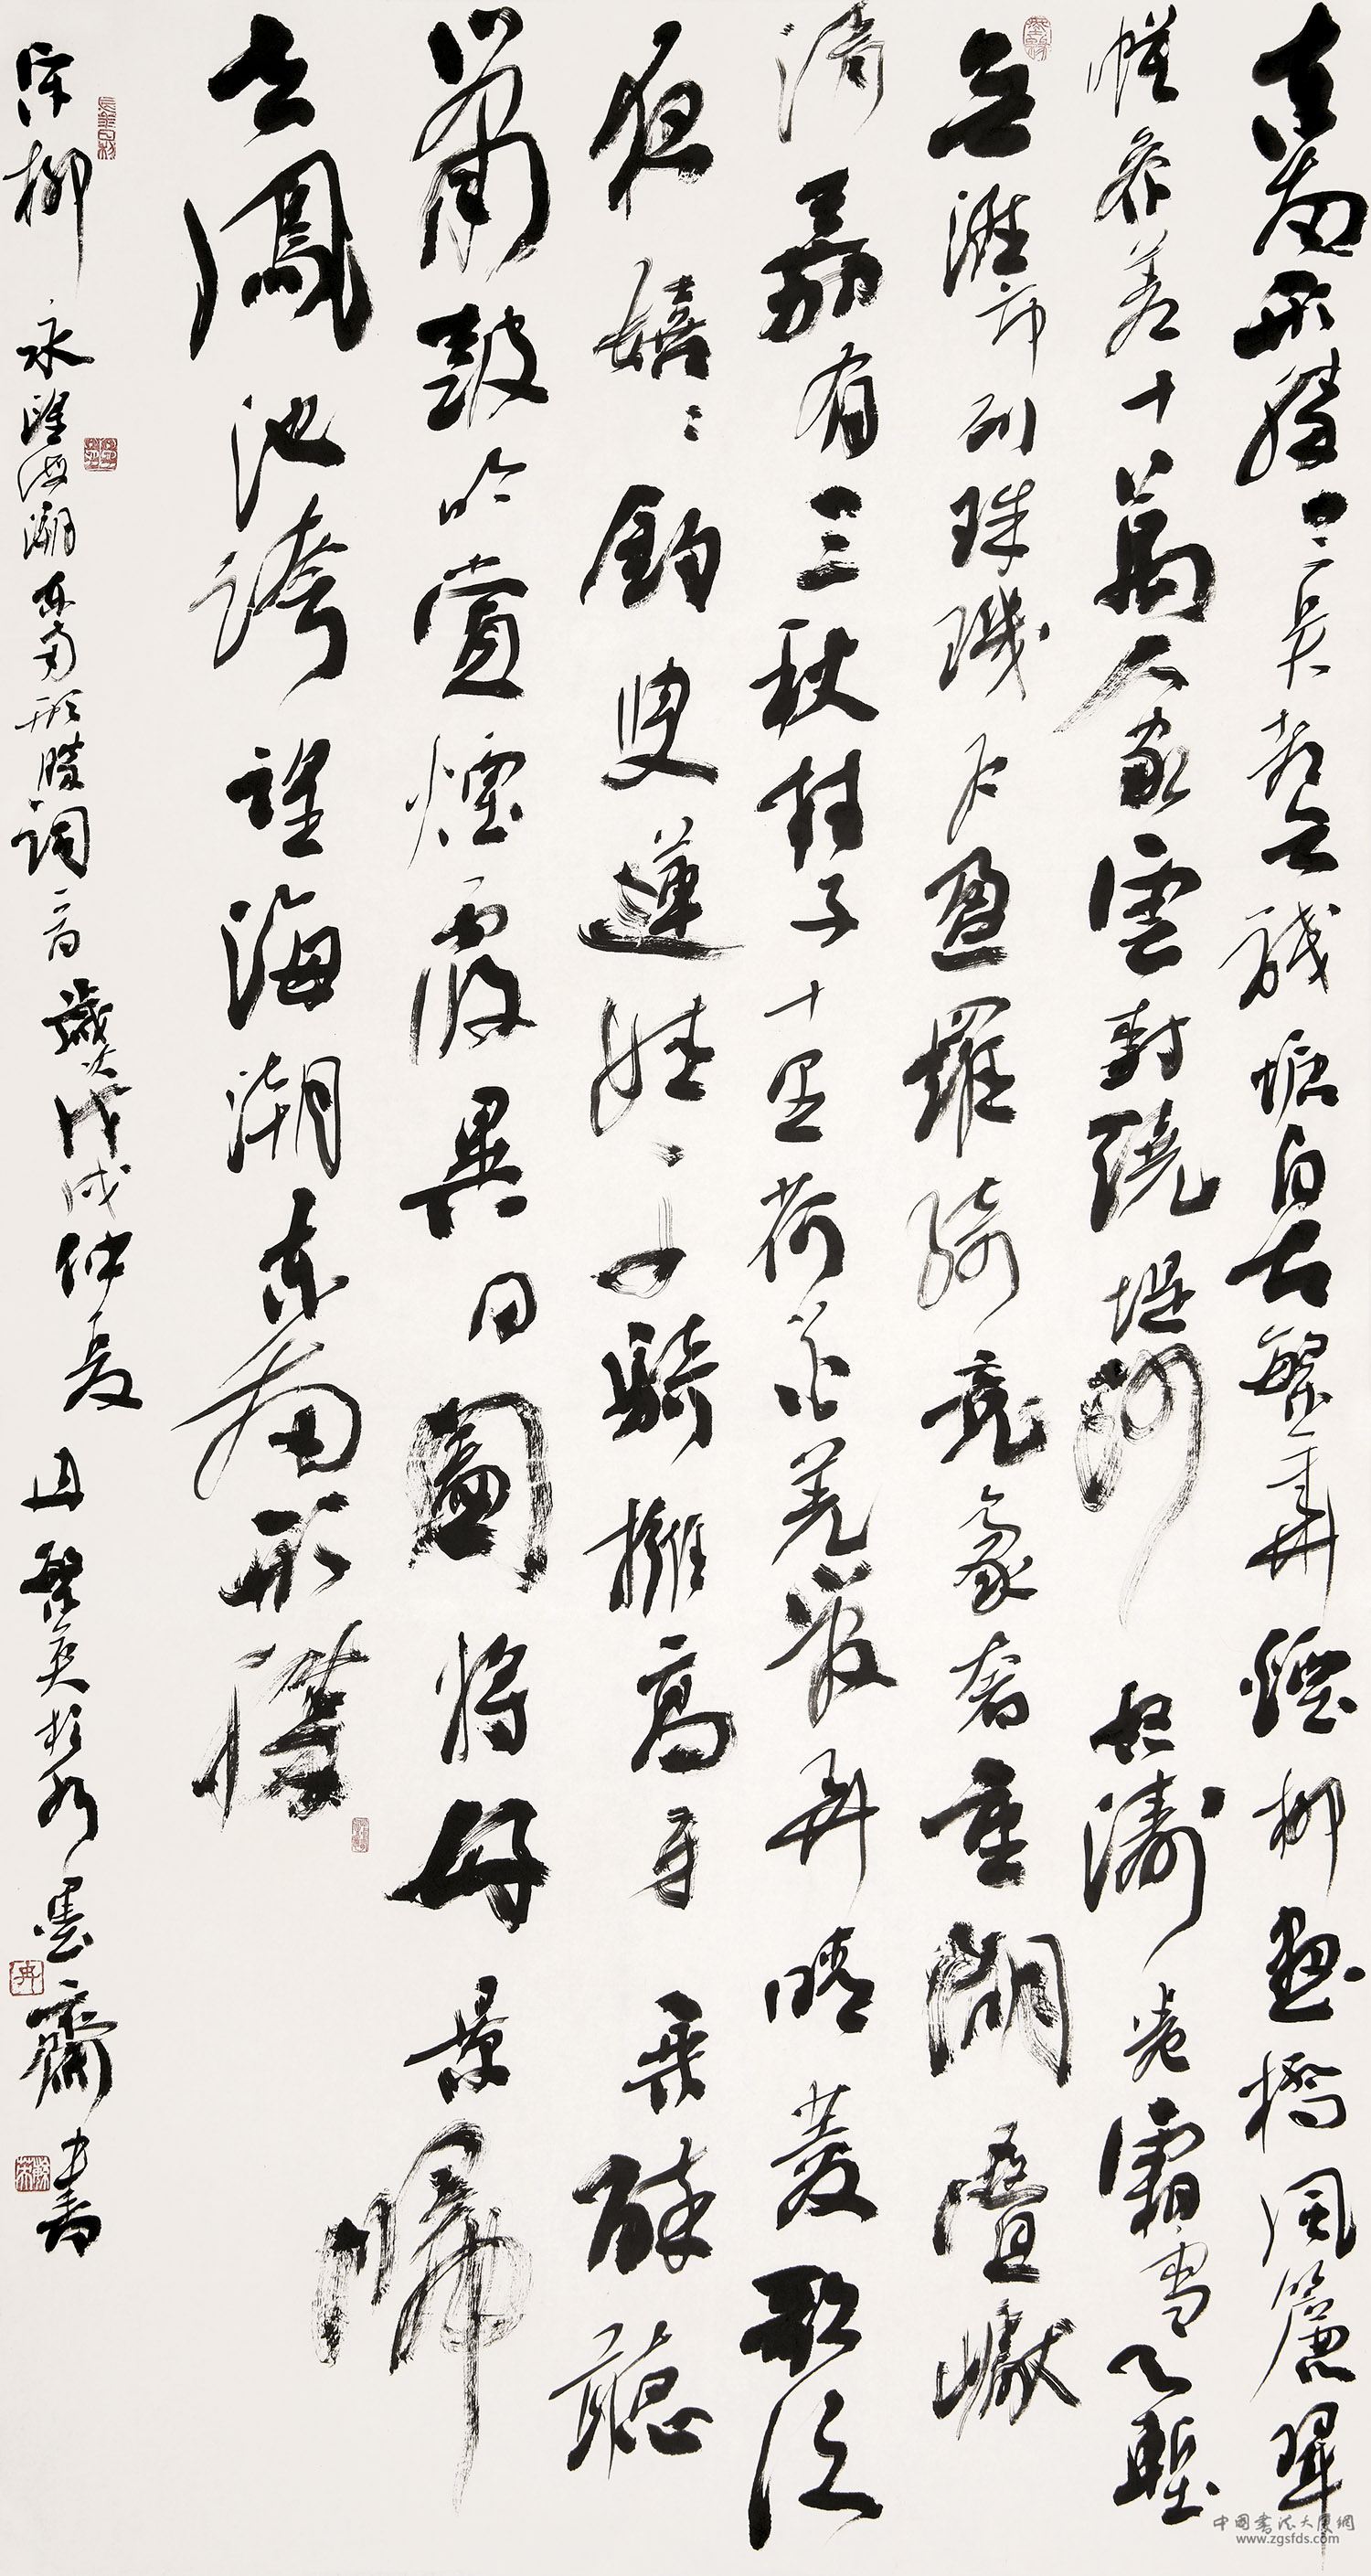 東南形勝三吳都會錢塘自古繁華煙柳畫橋風簾翠
幙參差十萬人家雲樹繞堤沙怒濤卷霜雪天塹
無涯市列珠璣户盈羅綺競豪奢重湖疊巘
清嘉有三秋桂子十里荷花羌管弄晴菱歌泛
夜嬉〻釣叟蓮娃〻千騎擁高牙乘醉聽
簫鼓吟賞煙霞異日圖將好景歸
去鳳池誇望海潮東南形勝
宋柳永望海潮東南形勝詞一首歲次戊戌仲夏冉繁英於水墨齋書
中國書法大廈網
www.zgsfds.com